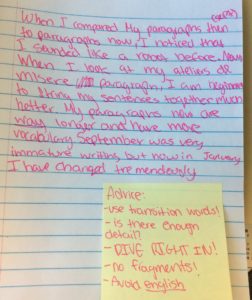 When I compared My paragraphs then
to paragraphs now, I noticed that
I sounded like a robot before. Now
When I look at my ateliers de
misère paragraph, I am beginning
to bring my sentences together much
better. My paragraphs now are
way longer and have more
vocabulary. September was very
immature writing but now in January
I have changed tremendously
Advice:
-use transition words!
- is there enough
detail?
- DIVE RIGHT IN!
- no fragments!
- Avoid english